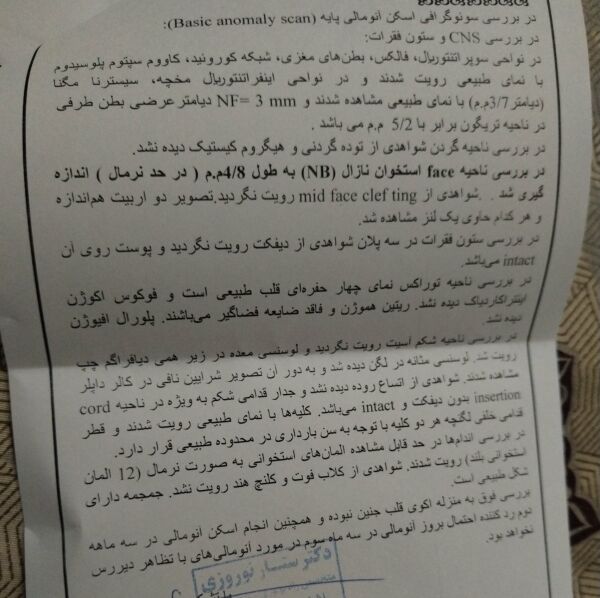 در بررسی سونوگرافی اسکن آنومالی پایه (Basic anomaly scan):
در بررسی CNS و ستون فقرات:
در نواحی سوپراتنتوریال، فالکس، بطن‌های مغزی، شبکه کورونید، کاووم سپتوم پلوسیدوم
با نمای طبیعی رویت شدند و در نواحی اینفراتنتوریال مخچه، سیسترنا مگنا
(دیامتر3/7م.م) با نمای طبیعی مشاهده شدند و NF= 3 mm دیامترعرضی بطن طرفی
در ناحیه تریگون برابر با 5/2 م.م می باشد .
در بررسی ناحیه گردن شواهدی از توده گردنی و هیگروم کیستیک دیده نشد.
در بررسی ناحیه face استخوان نازال (NB) به طول 4/8م.م ( در حد نرمال ) اندازه
گیری شد . .شواهدی از mid face clef ting رویت نگردید.تصویر دو اربیت هم‌اندازه
و هر کدام حاوی یک لنز مشاهده شد.
در بررسی ستون فقرات در سه پلان شواهدی از دیفکت رویت نگردید و پوست روی آن
intact می‌باشد.
در بررسی ناحیه توراکس نمای چهار حفره‌ای قلب طبیعی است و فوکوس اکوژن
اینتراکاردیاک دیده نشد. ریتین هموژن و فاقد ضایعه فضاگیر می‌باشند. پلورال افیوژن
دیده نشد.
در بررسی ناحیه شکم آسیت رویت نگردید و لوسنسی معده در زیر همی دیافراگم چپ
رویت شد. لوسنسی مثانه در لگن دیده شد و به دور آن تصویر شرایین نافی در کالر داپلر
مشاهده شدند. شواهدی از اتساع روده دیده نشد و جدار قدامی شکم به ویژه در ناحیه cord
insertion بدون دیفکت و intact می‌باشد. کلیه‌ها با نمای طبیعی رویت شدند و قطر
قدامی خلفی لگنچه هر دو کلیه با توجه به سن بارداری در محدوده طبیعی قرار دارد.
در بررسی اندام‌ها در حد قابل مشاهده المان‌های استخوانی به صورت نرمال (12 المان
استخوانی بلند) رویت شدند. شواهدی از کلاب فوت و کلنچ هند رویت نشد. جمجمه دارای
شکل طبیعی است.
بررسی فوق به منزله اکوی قلب جنین نبوده و همچنین انجام اسکن آنومالی در سه ماهه
دوم رد کننده احتمال بروز آنومالی در سه ماه سوم در مورد آنومالی‌های با تظاهر دیررس
نخواهد بود.
دکتر ستار نوروزی